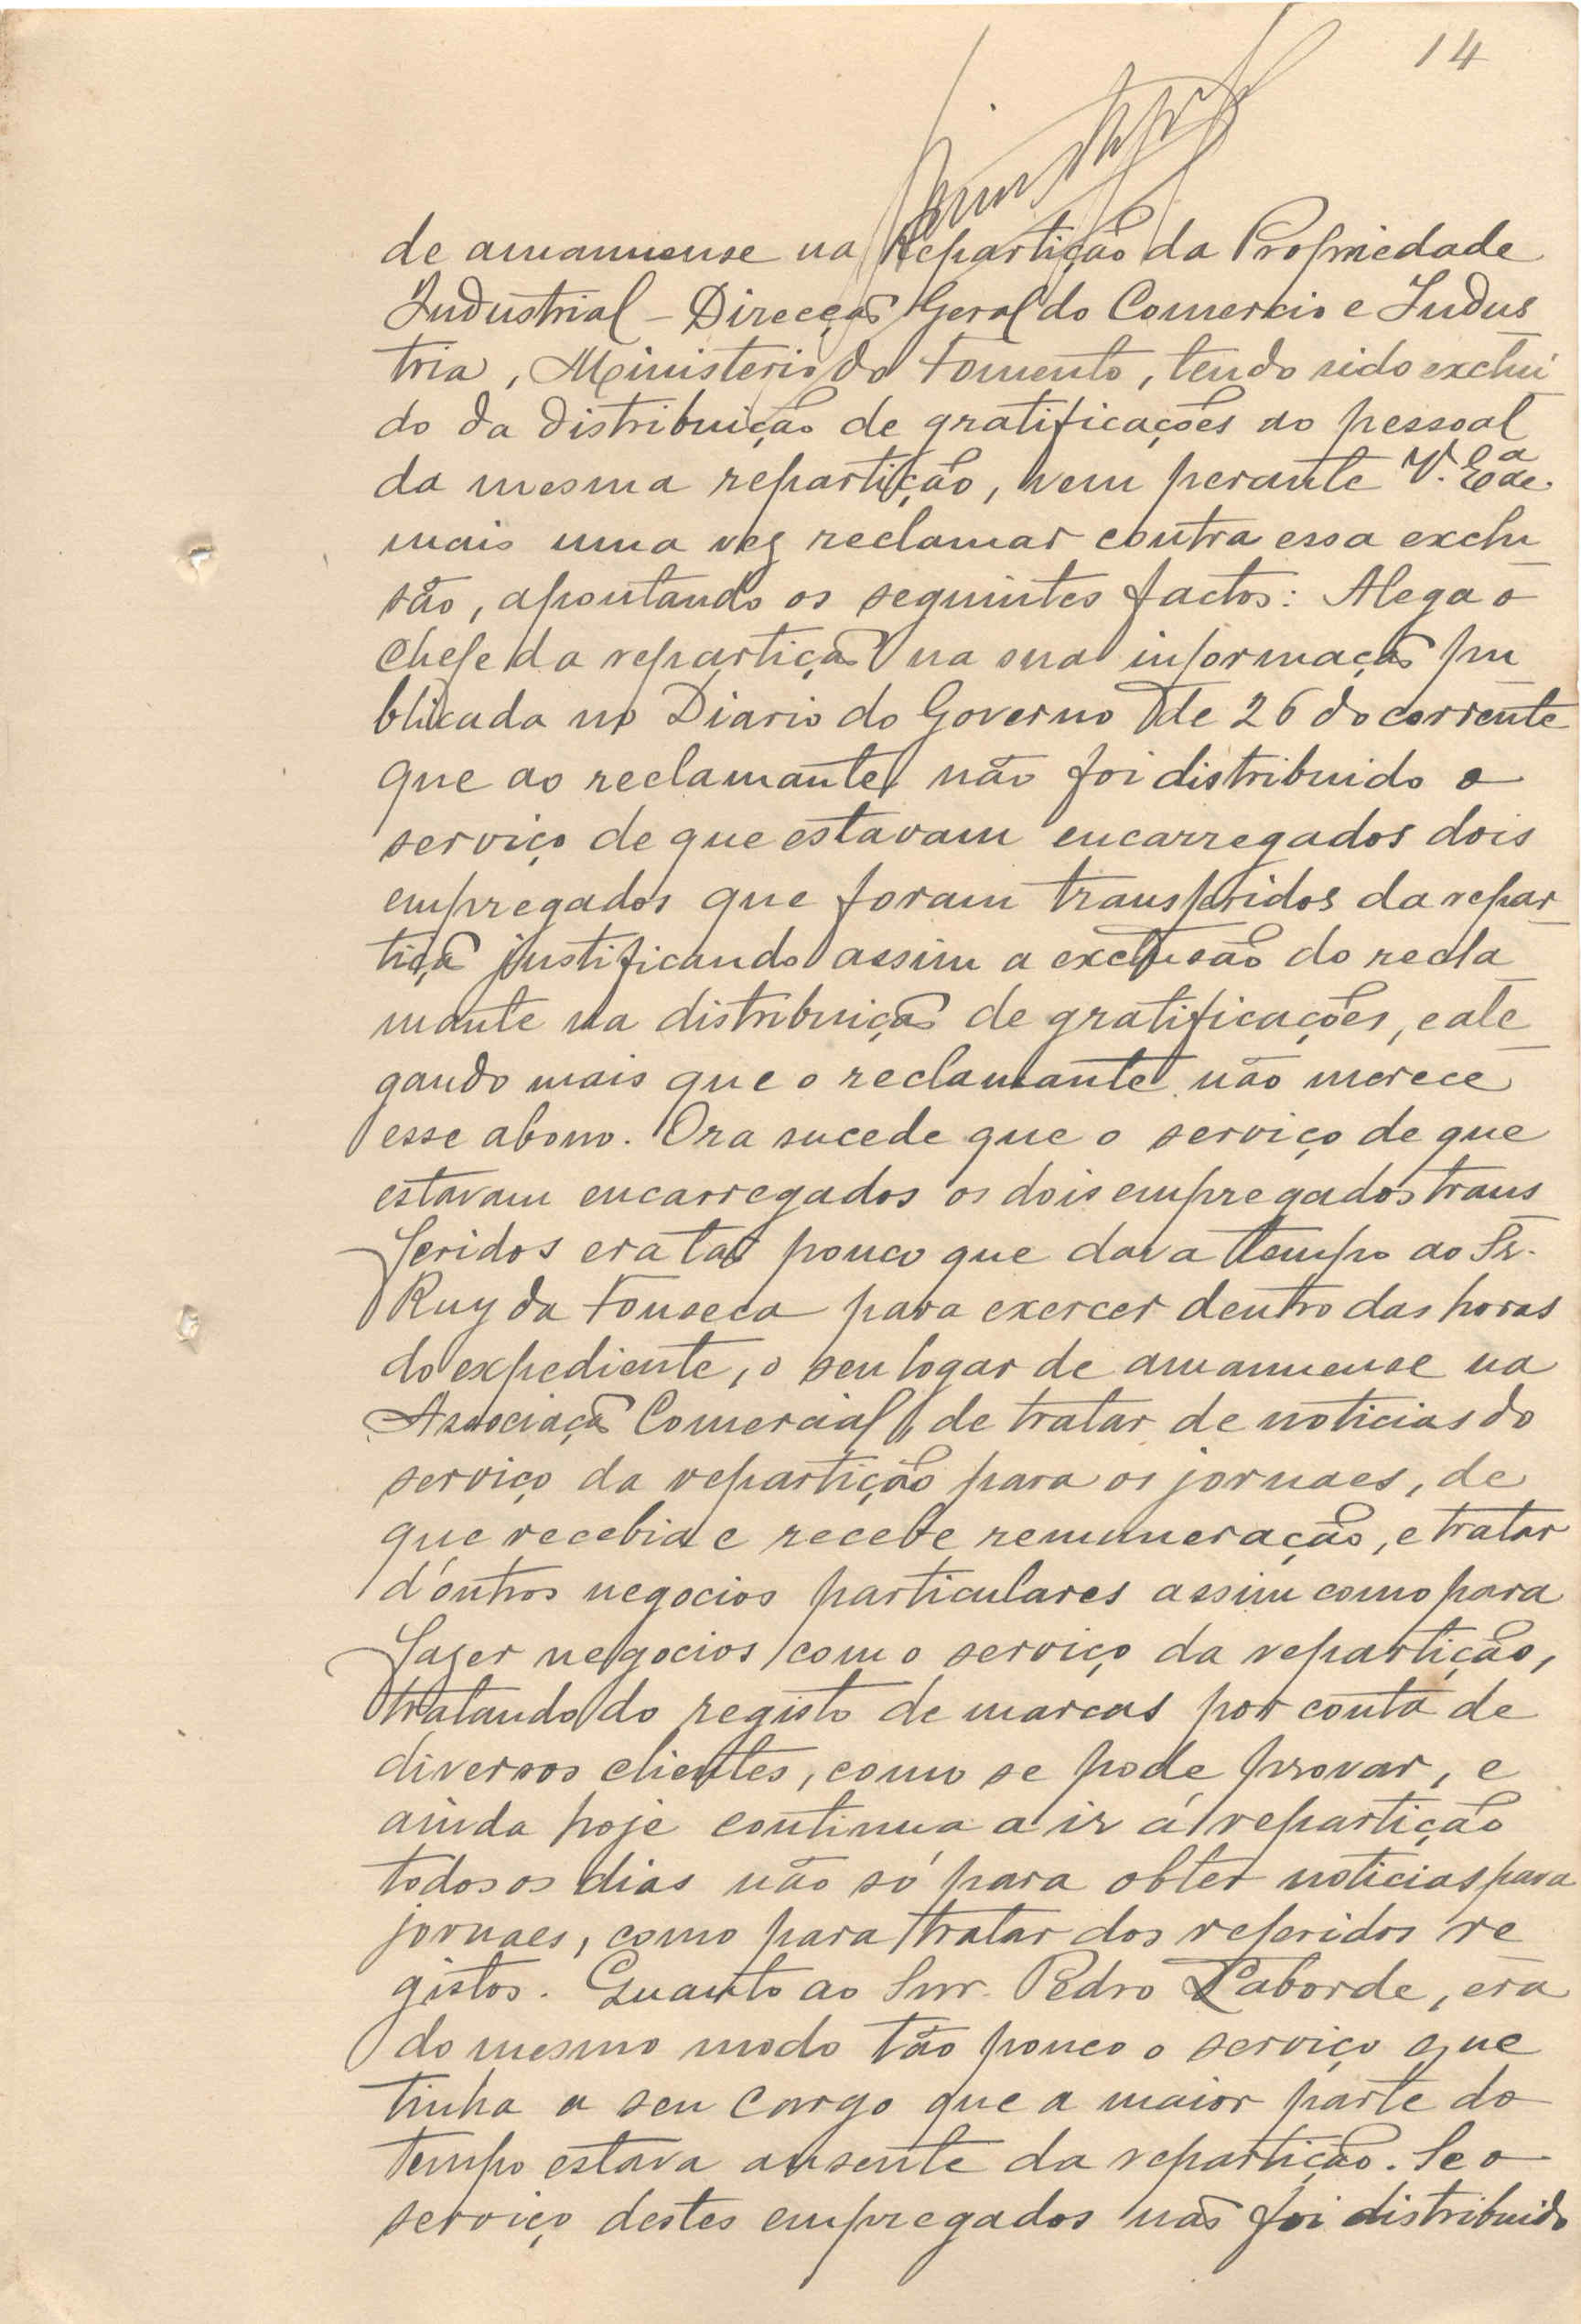 14
de amanuense na Repartição da Propriedade
Industrial – Direcção Geral do Comercio e Indus
tria, Ministerio do Fomento, tendo sido exclui
do da distribuição de gratificações ao pessoal
da mesma repartição, vem perante V. Exª.
mais uma vez reclamar contra essa exclu
são, apontando os seguintes factos: Alega o
chefe da repartição na sua informação pu
blicada no Diario do Governo de 26 do corrente
que ao reclamante não foi distribuido o
serviço de que estavam encarregados dois
empregados que foram transferidos da repar
tição justificando assim a exclusão do recla
mante na distribuição de gratificações, e ale
gando mais que o reclamante não merece
esse abono. Ora sucede que o serviço de que
estavam encarregados os dois empregados trans
feridos era tão pouco que dava tempo ao Sr.
Ruy da Fonseca para exercer dentro das horas
do expediente, o seu logar de amanuense na
Associação Comercial, de tratar de noticias do
serviço da repartição para os jornaes, de
que recebia e recebe remuneração, e tratar
d'outros negocios particulares assim como para
fazer negocios com o serviço da repartição,
tratando do registo de marcas por conta de
diversos clientes, como se pode provar, e
ainda hoje continua a ir á repartição
todos os dias não só para obter noticias para
jornaes, como para tratar dos referidos re
gistos. Quanto ao Snr. Pedro Laborde, era
do mesmo modo tão pouco o serviço que
tinha a seu cargo que a maior parte do
tempo estava ausente da repartição. Se o
serviço destes empregados não foi distribuido